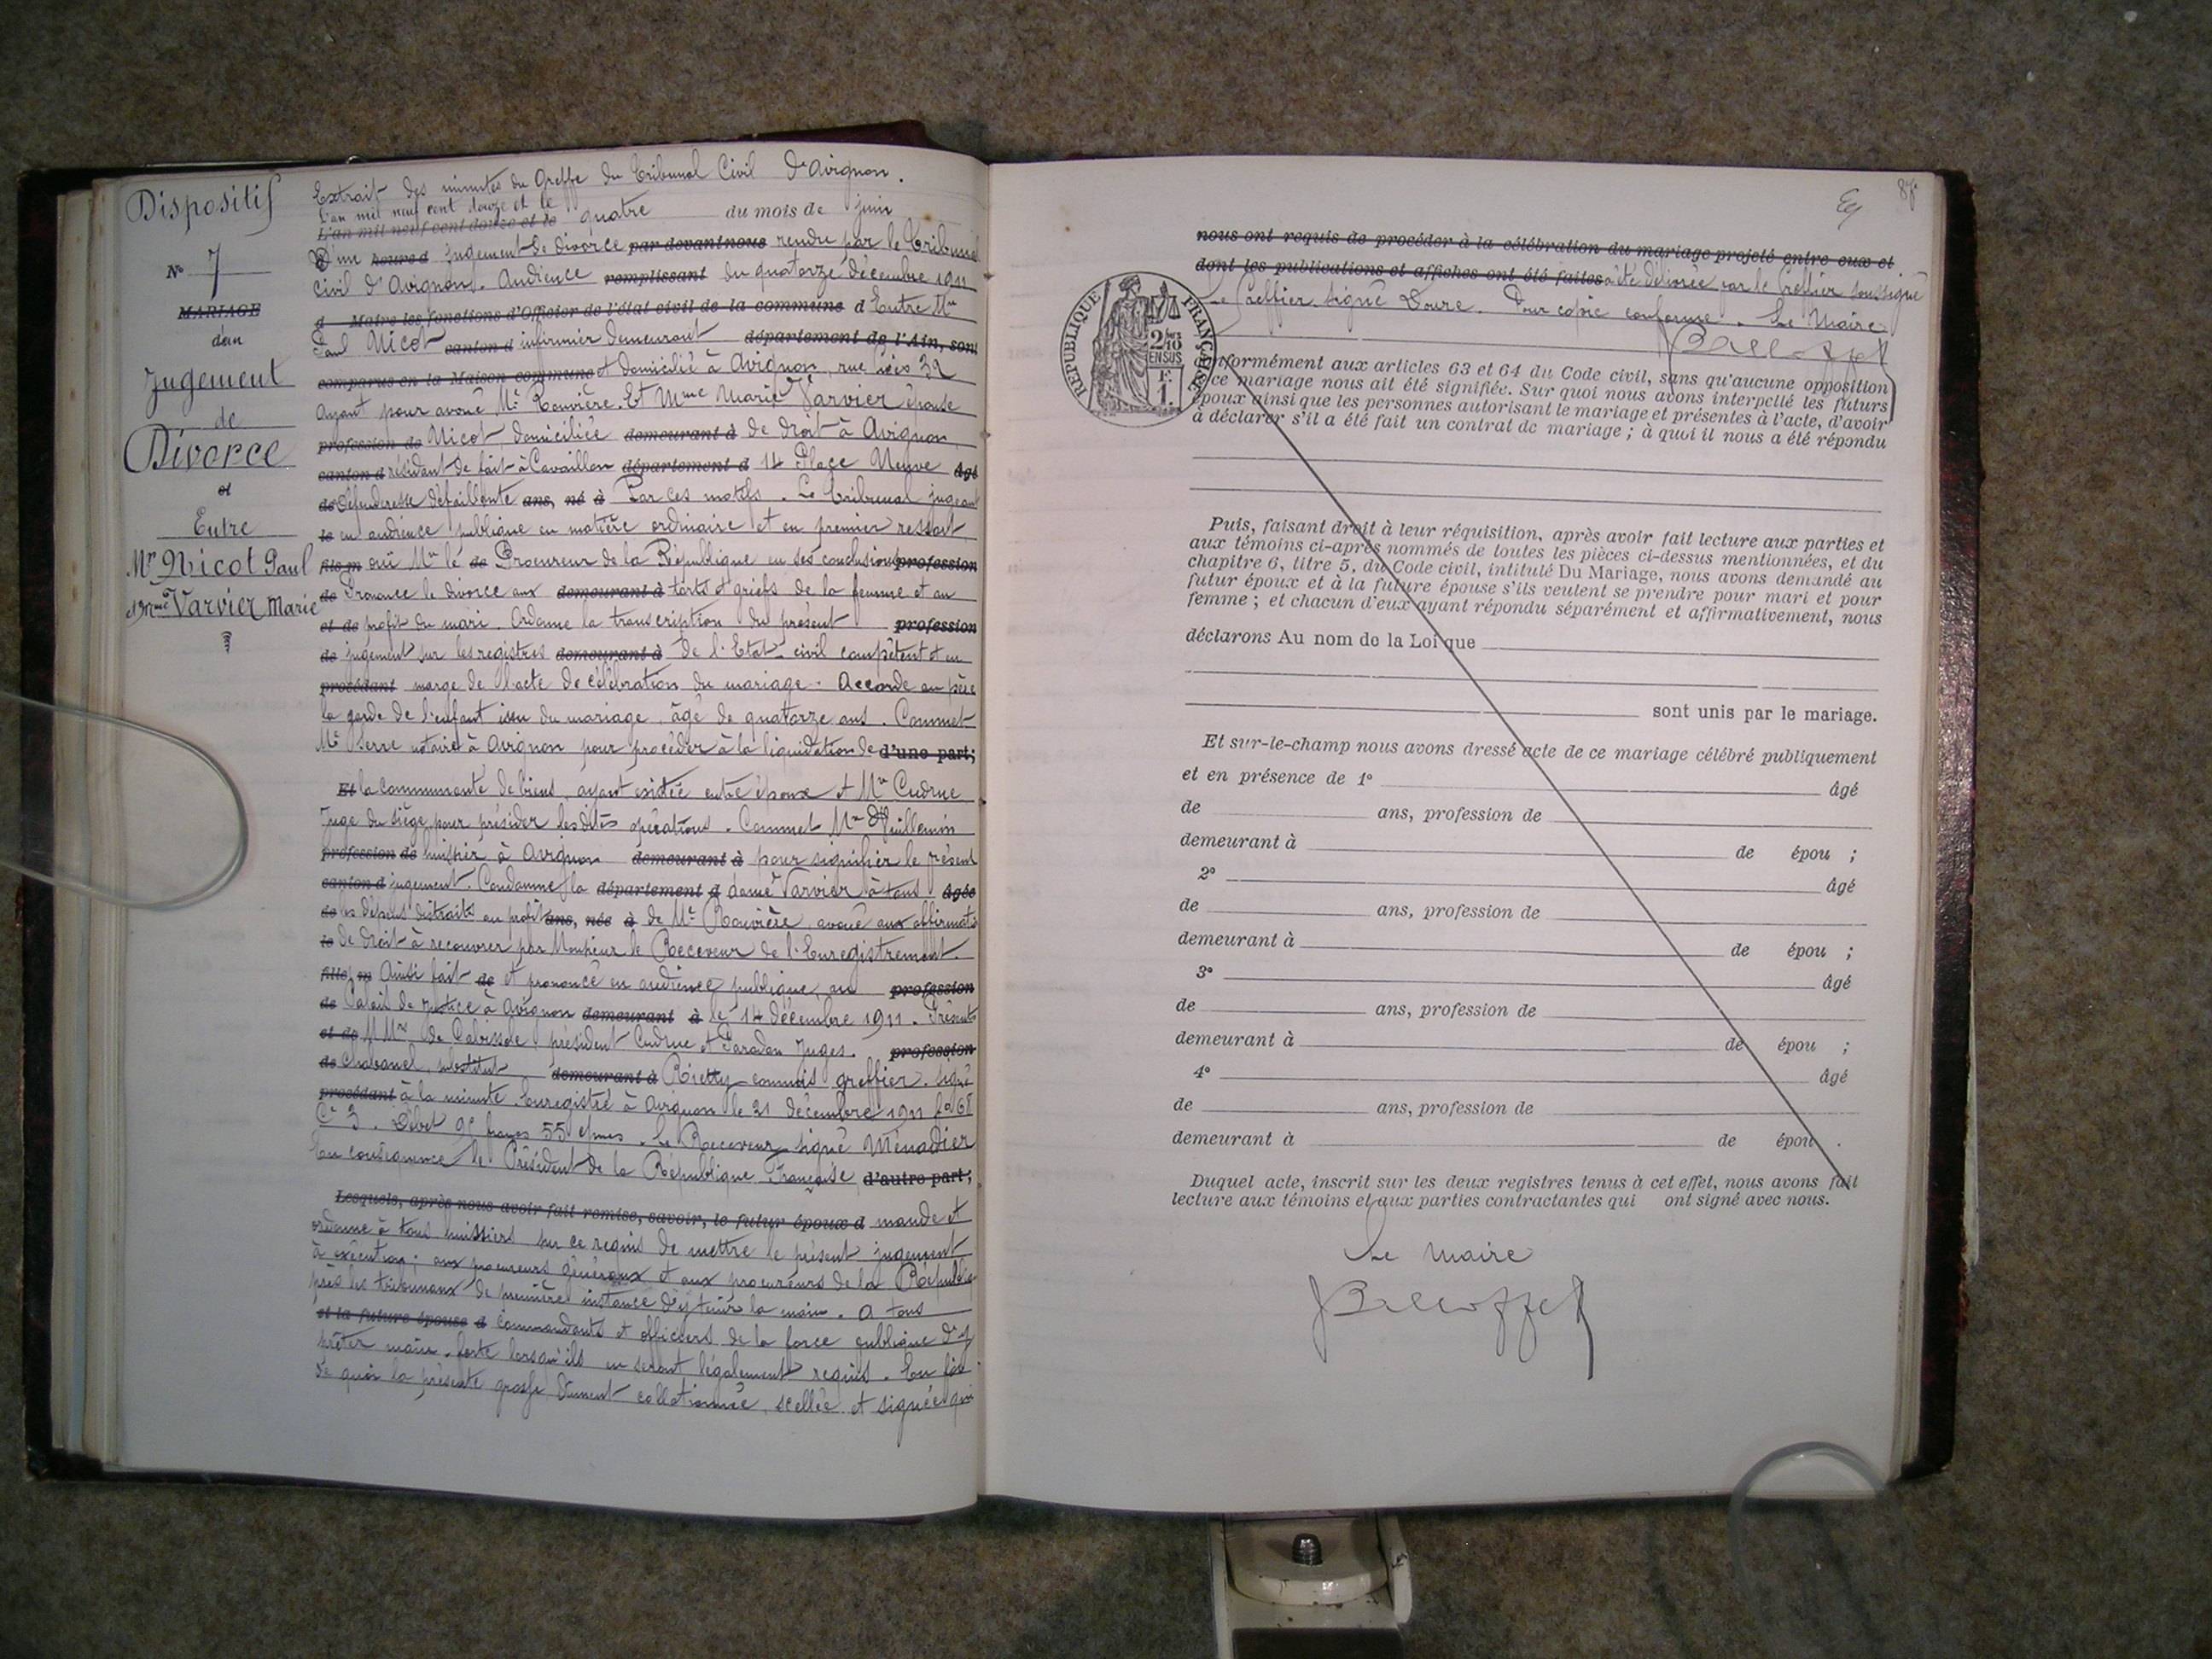 Dispositif
N° 7
MARIAGE
d'un
Jugement
de
Divorce
et
Entre
Mr Nicot Paul
et Mme Varvier Marie
Extrait des minutes du Greffe du Tribunal Civil d'Avignon.
L'an mil neuf cent douze et le
L'an mil neuf cent douze et le quatre du mois de juin
D'un jugement de divorce par devant nous rendu par le Tribunal
civil d'Avignon. Audience remplissant du quatorze décembre 1911
d Maire les fonctions d'Officier de l'état civil de la commune d Entre Mr
Paul Nicot canton d infirmier demeurant département de l'Ain, sont
comparus en la Maison commune et domicilié à Avignon, rue 32
Ayant pour avoué Me Rouvière. Et Mme Marie Varvier épouse
profession de Nicot, domiciliée demeurant à de droit à Avignon,
canton d résidant de fait à Cavaillon département d 14 Place Neuve âgé
de défenderesse défaillante ans, né à Par ces motifs. Le Tribunal jugeant
le en audience publique en matière ordinaire et en premier ressort
fils m ouï Mr le de Procureur de la République en ses conclusions profession
de Prononce le divorce aux demeurant à torts et griefs de la femme et au
et de profit du mari. Ordonne la transcription du présent profession
de jugement sur les registres demeurant à de l'Etat-civil compétent et en
procédant marge de l'acte de célébration du mariage. Accorde au père
la garde de l'enfant issu du mariage, âgé de quatorze ans. Commet
Me Serre notaire à Avignon pour procéder à la liquidation de d'une part;
Et la communauté de biens, ayant existée entre époux et Mr Cudrue
Juge du siège pour présider lesdites opérations. Commet Mr Guillemin
profession de huissier à Avignon demeurant à pour signifier le présent
canton d jugement. Condamne la département d dame Varvier à tous âgée
de les dépens distraits au profit ans, née à de Me Rouvière, avoué aux affirmatio
le de droit à recouvrer par Monsieur le Receveur de l'Enregistrement.
fille m Ainsi fait de et prononcé en audience publique, au profession
de Palais de justice à Avignon demeurant à le 14 décembre 1911. Présents
et de MMrs de Cabissole, président Cudrue et Paradan Juges. profession
de Chabanel, substitut demeurant à Rietty commis greffier. Signé
procédant à la minute. Enregistré à Avignon le 21 décembre 1911 fo 68
Ce 3. Débet 9e francs 55 cmes. Le Receveur signé Ménadier
En conséquence le Président de la République Française d'autre part;
Lesquels, après nous avoir fait remise, savoir, le futur époux d mande et
ordonne à tous huissiers sur ce requis de mettre le présent jugement
à exécution; aux procureurs généraux et aux procureurs de la République
près les tribunaux de première instance d'y tenir la main. A tous
et la future épouse d commandants et officiers de la force publique d'y
prêter main-forte lorsqu'ils en seront légalement requis. En foi
de quoi la présente grosse dûment collationnée, scellée et signée qui
87
nous ont requis de procéder à la célébration du mariage projeté entre eux et
dont les publications et affiches ont été faites a été délivrée par le Greffier soussigné
Le Greffier signé Doure. Pour copie conforme. Le Maire
REPUBLIQUE FRANÇAISE
2/10 EN SUS
F. 1.
Conformément aux articles 63 et 64 du Code civil, sans qu'aucune opposition
ce mariage nous ait été signifiée. Sur quoi nous avons interpellé les futurs
époux ainsi que les personnes autorisant le mariage et présentes à l'acte, d'avoir
à déclarer s'il a été fait un contrat de mariage ; à quoi il nous a été répondu
Puis, faisant droit à leur réquisition, après avoir fait lecture aux parties et
aux témoins ci-après nommés de toutes les pièces ci-dessus mentionnées, et du
chapitre 6, titre 5, du Code civil, intitulé Du Mariage, nous avons demandé au
futur époux et à la future épouse s'ils veulent se prendre pour mari et pour
femme ; et chacun d'eux ayant répondu séparément et affirmativement, nous
déclarons Au nom de la Loi que
sont unis par le mariage.
Et sur-le-champ nous avons dressé acte de ce mariage célébré publiquement
et en présence de 1° âgé
de ans, profession de
demeurant à de épou ;
2° âgé
de ans, profession de
demeurant à de épou ;
3° âgé
de ans, profession de
demeurant à de épou ;
4° âgé
de ans, profession de
demeurant à de épou .
Duquel acte, inscrit sur les deux registres tenus à cet effet, nous avons fait
lecture aux témoins et aux parties contractantes qui ont signé avec nous.
Le Maire